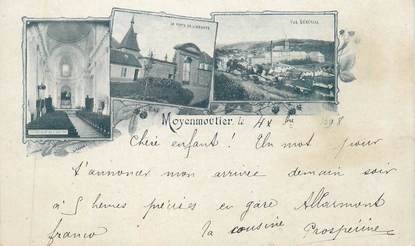 LA PORTE DE L'ABBAYE
VUE GÉNÉRALE
Moyenmoutier, le 4 Xbre 98
Chère enfant ! Un mot pour
t'annoncer mon arrivée demain soir
à 5 heures précises en gare Allarmont
franco la cousine Prospérine